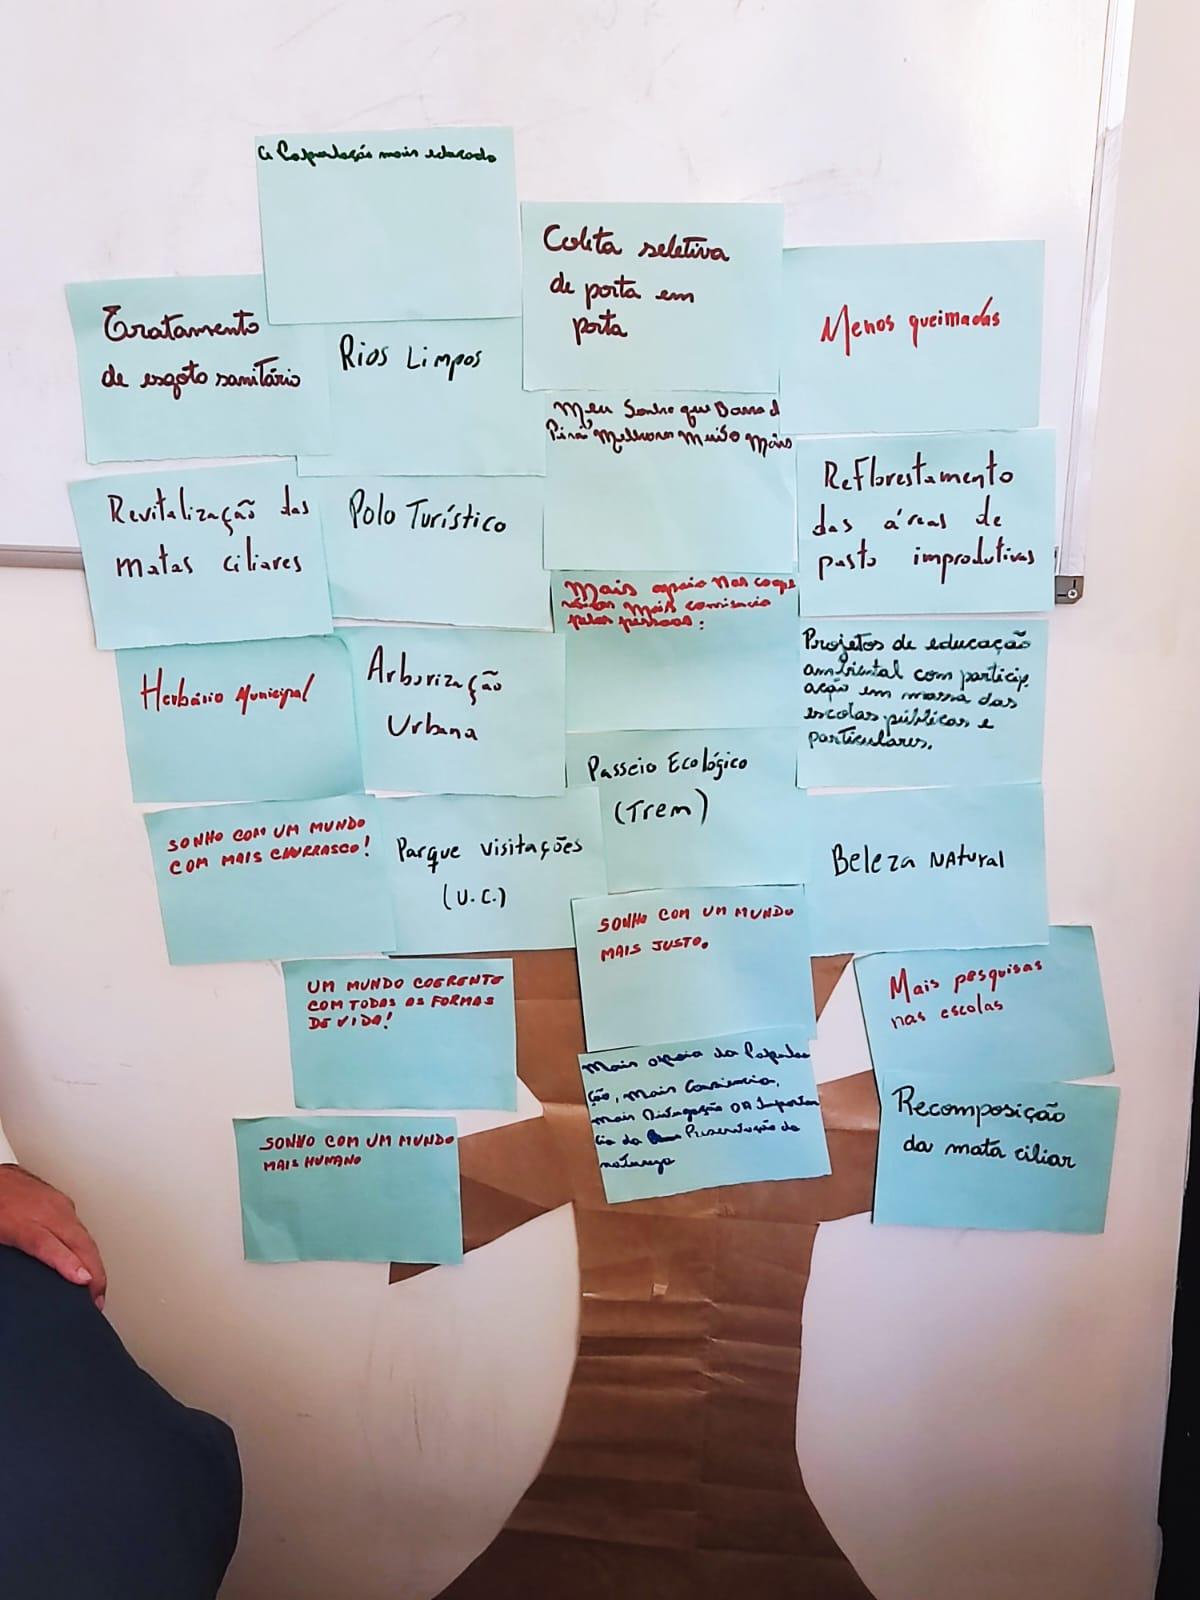 a População mais educada
Coleta seletiva
de porta em
porta
Menos queimadas
Tratamento
de esgoto sanitário
Rios Limpos
Meu Sonho que Barra d
Piraí Melhora Muito Mais
Reflorestamento
das áreas de
pasto improdutivas
Revitalização das
matas ciliares
Polo Turístico
Mais apoio nas coope
mais
pelas pessoas:
Projetos de educação
ambiental com particip.
ação em massa das
escolas públicas e
particulares.
Herbário Municipal
Arborização
Urbana
Passeio Ecológico
(Trem)
SONHO COM UM MUNDO
COM MAIS CHURRASCO!
Parque visitações
(U.C.)
Beleza Natural
SONHO COM UM MUNDO
MAIS JUSTO.
UM MUNDO COERENTE
COM TODAS AS FORMAS
DE VIDA!
Mais pesquisas
nas escolas
Mais apoio da Popula
ção, mais Consiencia,
mais Divugação DA Importan
cia da Preservação da
natureza
Recomposição
da mata ciliar
SONHO COM UM MUNDO
MAIS HUMANO